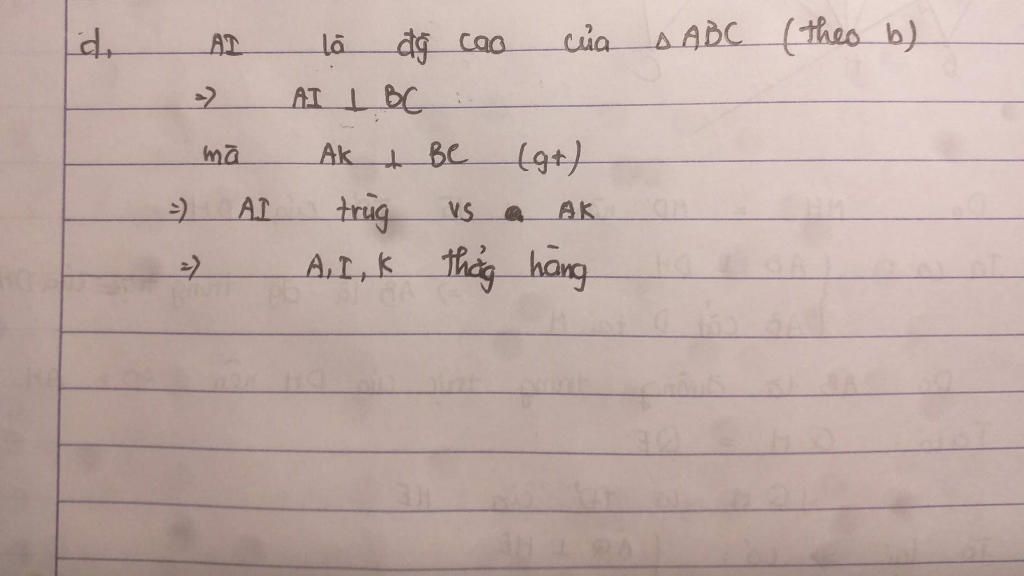 d, AI là đg̃ cao của △ ABC (theo b)
=> AI ⊥ BC
mà AK ⊥ BC (gt)
=> AI trùg vs AK
=> A, I, K thẳg hàng